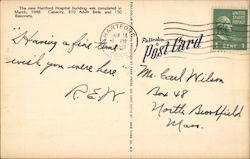 The new Hartford Hospital building was completed in
March, 1948. Capacity, 810 Adult Beds and 150
Bassinets.
HARTFORD
Post Card
"Having a fine time
wish you were here"
R.E.W.
Mr. Carl Wilson
Box 48
North Brookfield
Mass.